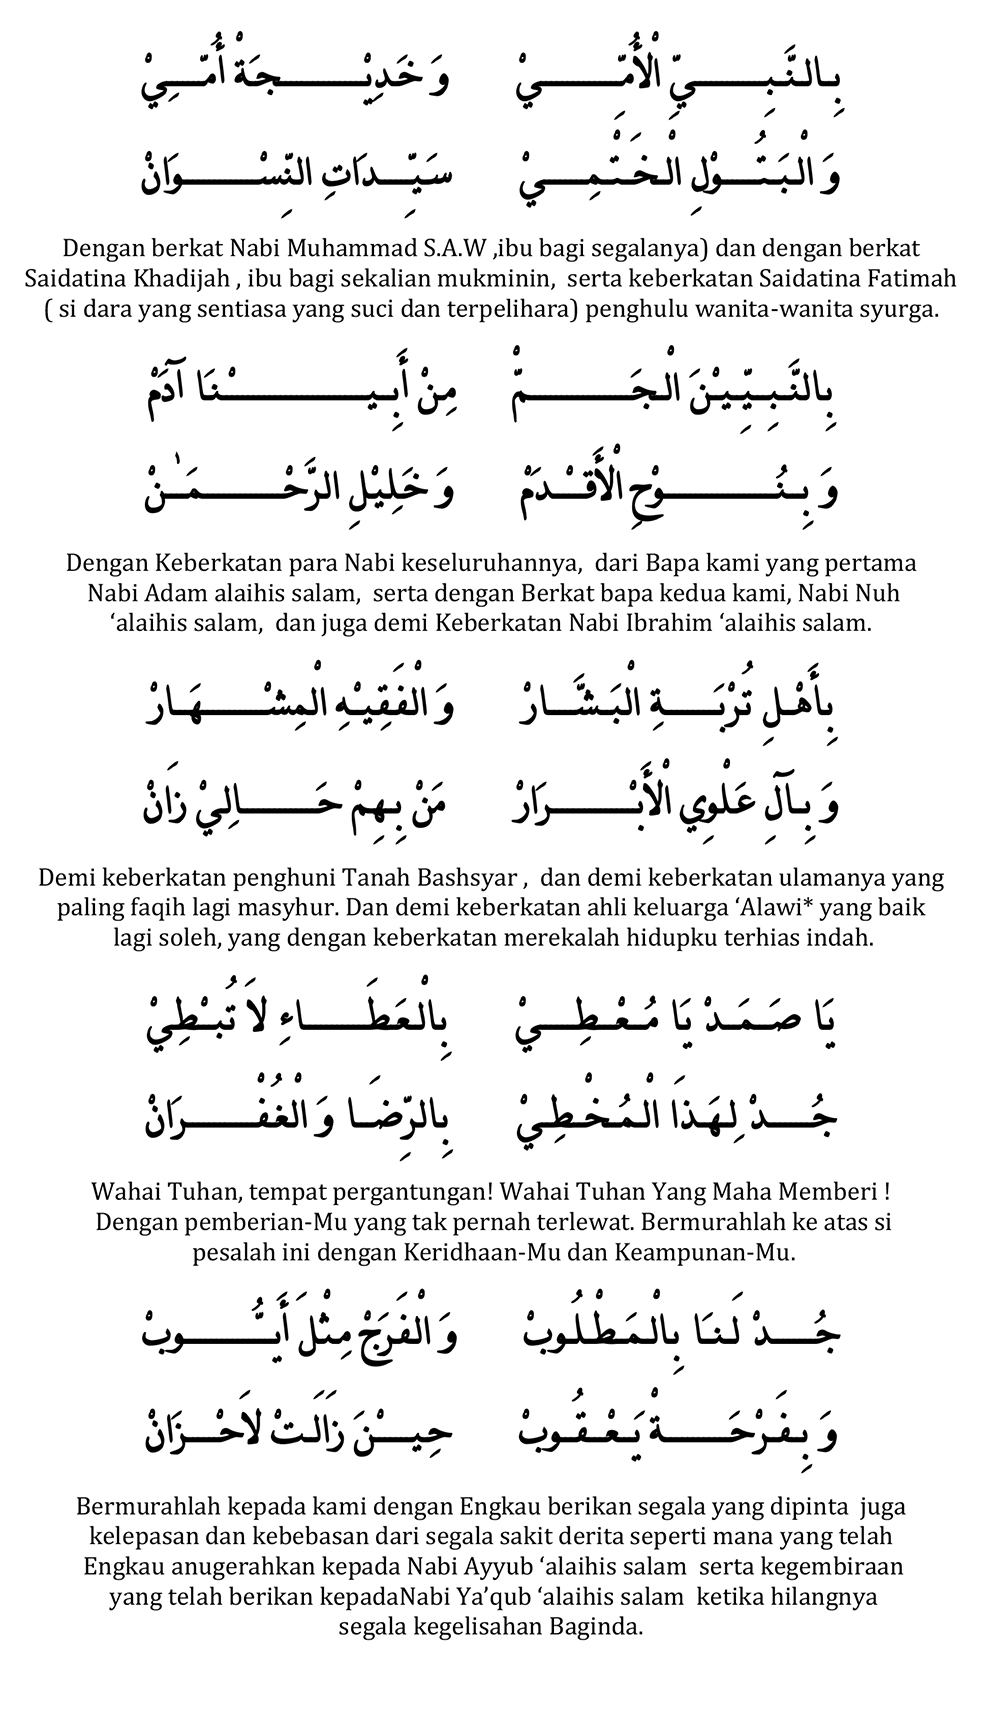 بِالنَّبِيِّ الْأُمِّيْ وَ خَدِيْجَةْ أُمِّيْ
وَ الْبَتُوْلِ الْخَتْمِيْ سَيِّدَاتِ النِّسْوَانْ
Dengan berkat Nabi Muhammad S.A.W ,ibu bagi segalanya) dan dengan berkat
Saidatina Khadijah , ibu bagi sekalian mukminin, serta keberkatan Saidatina Fatimah
( si dara yang sentiasa yang suci dan terpelihara) penghulu wanita-wanita syurga.
بِالنَّبِيِّيْنَ الْجَمّْ مِنْ أَبِيْنَا آدَمْ
وَ بِنُوْحِ الْأَقْدَمْ وَ خَلِيْلِ الرَّحْمَٰنْ
Dengan Keberkatan para Nabi keseluruhannya, dari Bapa kami yang pertama
Nabi Adam alaihis salam, serta dengan Berkat bapa kedua kami, Nabi Nuh
‘alaihis salam, dan juga demi Keberkatan Nabi Ibrahim ‘alaihis salam.
بِأَهْلِ تُرْبَةِ الْبَشَّارْ وَ الْفَقِيْهِ الْمِشْهَارْ
وَ بِآلِ عَلْوِي الْأَبْرَارْ مَنْ بِهِمْ حَالِيْ زَانْ
Demi keberkatan penghuni Tanah Bashsyar , dan demi keberkatan ulamanya yang
paling faqih lagi masyhur. Dan demi keberkatan ahli keluarga ‘Alawi* yang baik
lagi soleh, yang dengan keberkatan merekalah hidupku terhias indah.
يَا صَمَدْ يَا مُعْطِيْ بِالْعَطَاءِ لاَ تُبْطِيْ
جُدْ لِهَذَا الْمُخْطِيْ بِالرِّضَا وَ الْغُفْرَانْ
Wahai Tuhan, tempat pergantungan! Wahai Tuhan Yang Maha Memberi !
Dengan pemberian-Mu yang tak pernah terlewat. Bermurahlah ke atas si
pesalah ini dengan Keridhaan-Mu dan Keampunan-Mu.
جُدْ لَنَا بِالْمَطْلُوبْ وَ الْفَرَجْ مِثْلَ أَيُّوبْ
وَ بِفَرْحَةْ يَعْقُوبْ حِيْنَ زَالَتْ لاَحْزَانْ
Bermurahlah kepada kami dengan Engkau berikan segala yang dipinta juga
kelepasan dan kebebasan dari segala sakit derita seperti mana yang telah
Engkau anugerahkan kepada Nabi Ayyub ‘alaihis salam serta kegembiraan
yang telah berikan kepadaNabi Ya’qub ‘alaihis salam ketika hilangnya
segala kegelisahan Baginda.